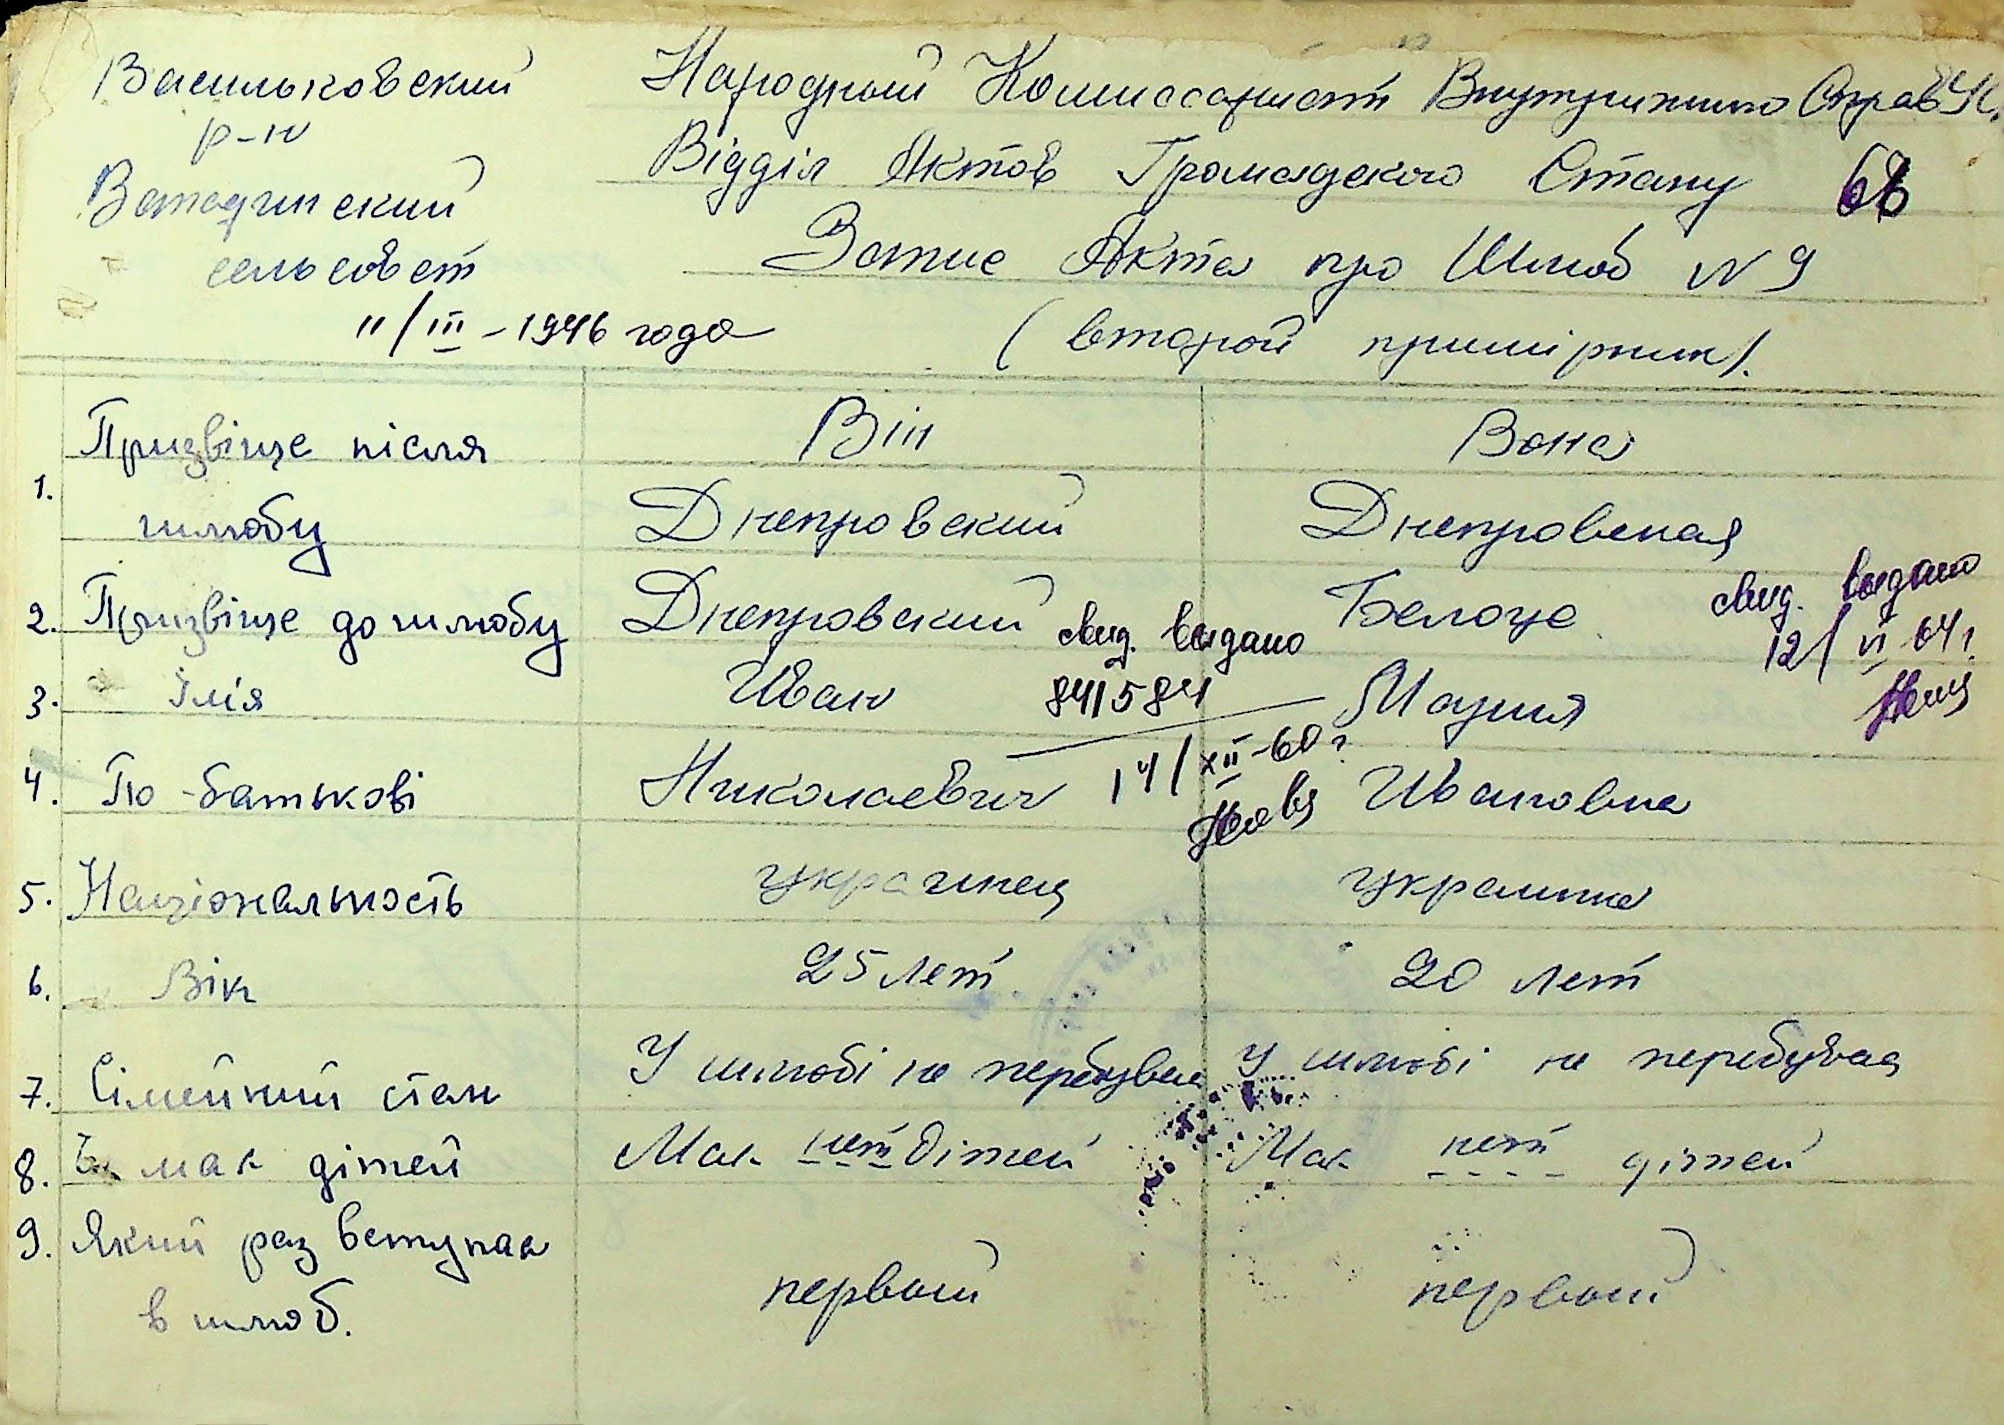 Васильковский
р-н
сельсовет
11/III-1946 года
Народний Комиссариат Внутришних Справ
Відділ Актов Громадского Стану 68
Запис Акта про Шлюб N 9
(второй примірник).
Він Вона
1. Призвіще після шлюбу Днепровский Днепровская
2. Призвіще до шлюбу Днепровский Белоце
свид. выдано 841584
14/XII-60 г
свид. выдано
12/VI-64 г.
3. Імія Иван Мария
4. По-батькові Николаевич Ивановна
5. Національность украинец украинка
6. Вік 25 лет 20 лет
7. Сімейний стан У шлюбі не перебував У шлюбі не перебувала
8. має дітей Має нет дітей Має нет дітей
9. Який раз вступає
в шлюб. первый первый